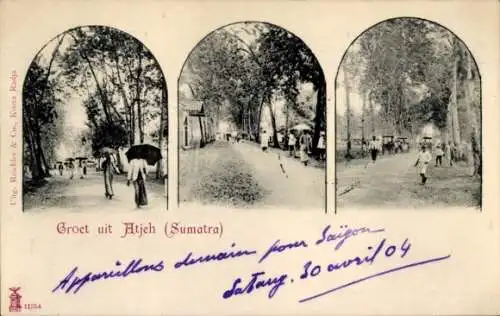 Uitg. Raschker & Co., Kotta Radja
Groet uit Atjeh (Sumatra)
Appareillons demain pour Saïgon
Satang 30 avril 04
11354